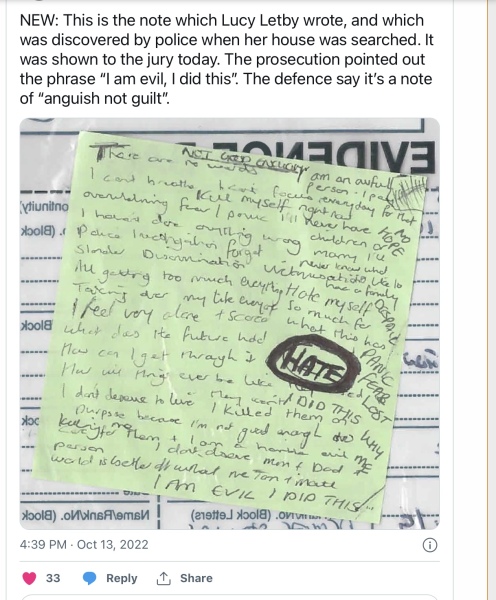 NEW: This is the note which Lucy Letby wrote, and which
was discovered by police when her house was searched. It
was shown to the jury today. The prosecution pointed out
the phrase “I am evil, I did this”. The defence say it’s a note
of “anguish not guilt”.
EVIDENCE
There are no words
NOT GOOD ENOUGH
I am an awful
person - I pay
everyday for that
I can't breathe I can't focus
Kill myself right now
overwhelming fear / panic
I'll never have
children or
marry I'll
never know what
like to
have a family
NO
HOPE
I haven't done anything wrong
Police investigation forget
Slander Discrimination
All getting too much everything
Hate myself so much for
what this has
Taking over my life
I feel very alone + scared
What does the future hold
How can I get through it
How will things ever be like
HATE
DESPAIR
PANIC
FEAR
LOST
I don't deserve to live
I DID THIS
WHY
ME
I killed them on
purpose because I'm not good enough
to care for them + I am a horrible evil
person
I don't deserve Mum + Dad
world is better off without me
I AM EVIL I DID THIS
Name/Rank/No. (Block
(Block Letters)
4:39 PM · Oct 13, 2022
33
Reply
Share